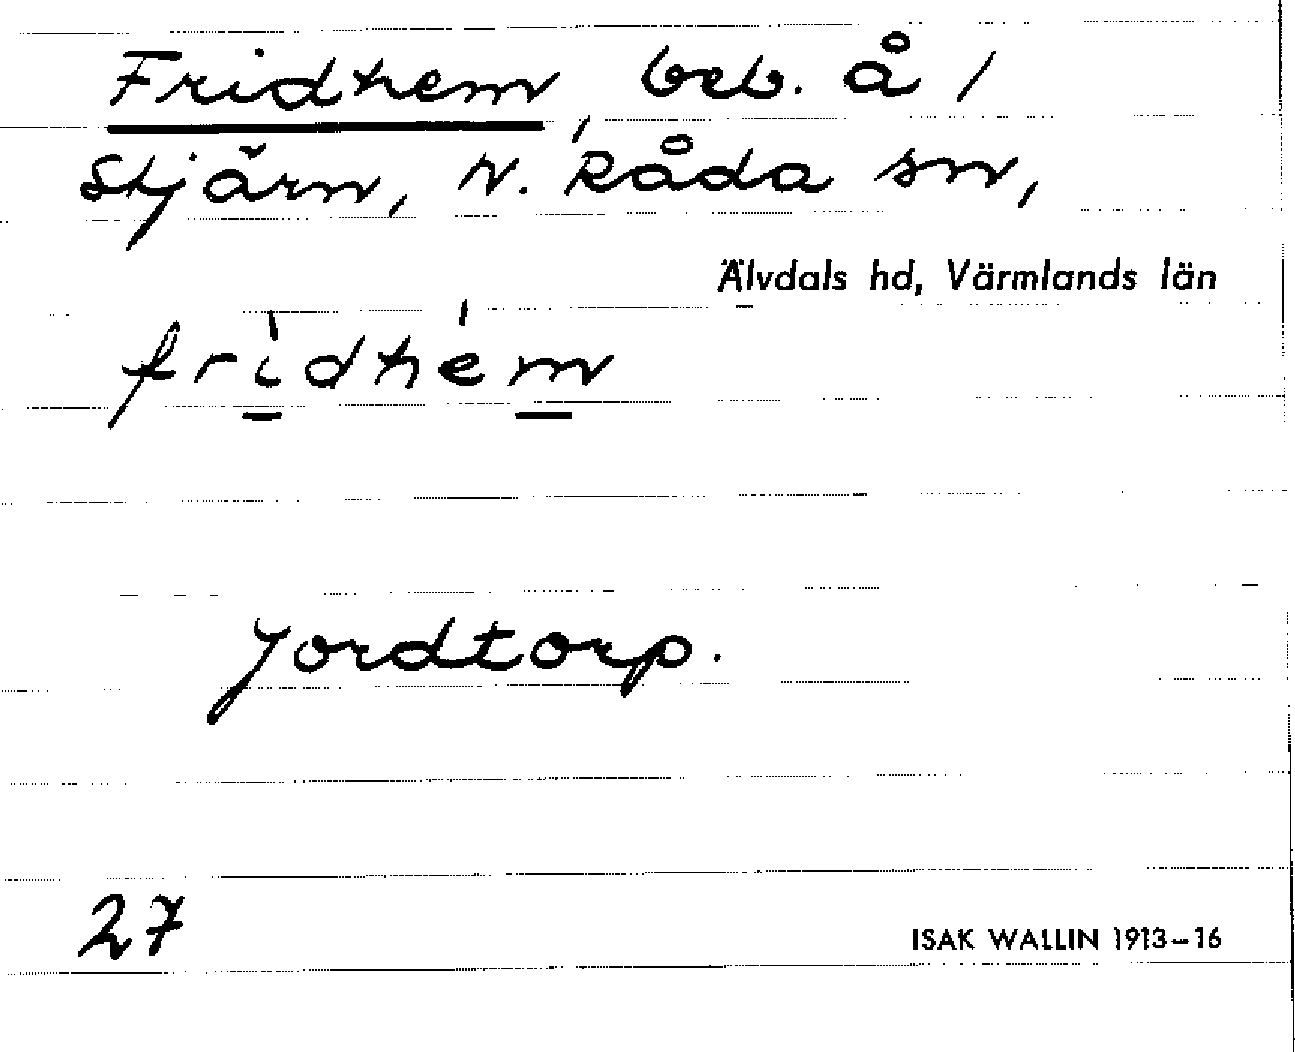 Fridhem, beb. å 1
Stjärn, N. Råda sn,
Älvdals hd, Värmlands län
frìdhém
Jordtorp.
27
ISAK WALLIN 1913–16